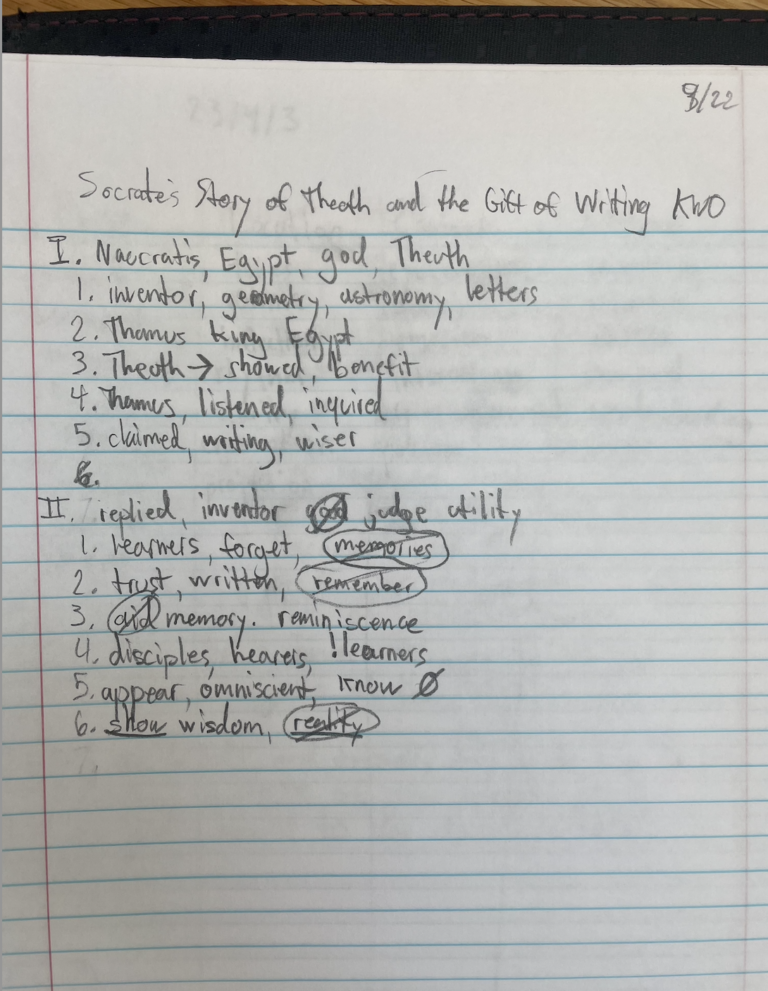 8/22
Socrate's Story of Theoth and the Gift of Writing KWO
I. Naucratis, Egypt, god, Theuth
1. inventor, geometry, astronomy, letters
2. Thamus king Egypt
3. Theoth → showed, benefit
4. Thamus, listened, inquired
5. claimed, writing, wiser
6.
II. replied, inventor good judge utility
1. learners, forget, memories
2. trust, written, remember
3. aid memory. reminiscence
4. disciples, hearers, !learners
5. appear, omniscient, know Ø
6. show wisdom, reality
7.